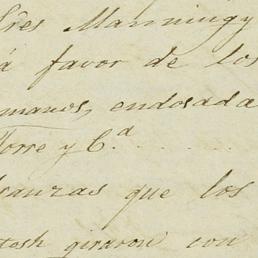 Sres Manning y
á favor de los
manos, endosada
Torre y Ca. . . . .
branzas que los
tosh giraron con